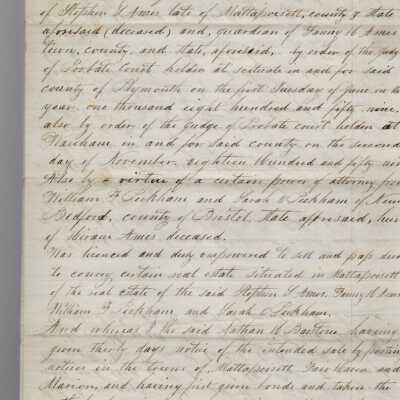 of Stephen L Ames late of Mattapoisett, county & State
aforesaid (deceased) and, guardian of Fanny H Ames
Town, county, and State, aforesaid, by order of the Judg
of Probate Court holden at scituate in and for said
county of Plymouth on the first Tuesday of June in the
year one thousand eight hundred and fifty nine.
also by order of the Judge of Probate court holden at
Wareham in and for said county on the second
day of November, eighteen hundred and fifty nin
Also by a virtue of a certain power of attorney from
William F Peckham and Sarah Peckham of New
Bedford, county of Bristol, State aforesaid, heir
of Hiram Ames deceased.
Was licenced and duly empowered to sell and pass deed
to convey certain real estate situated in Mattapoisett
of the real estate of the said Stephen L Ames, Fanny H Ames
William F Peckham, and Sarah Peckham.
And whereas I the said Nathan H Barstow having
given thirty days notice of the intended sale by posting
notices in the towns of Mattapoisett Fairhaven and
Marion, and having first given bonds and taken the